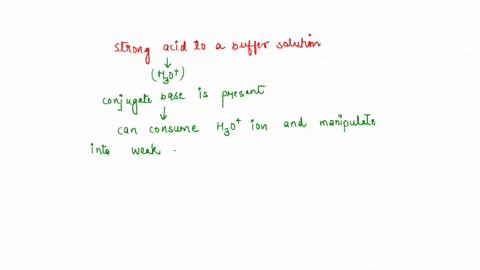 strong acid to a buffer solution
(H₃O⁺)
conjugate base is present
can consume H₃O⁺ ion and manipulate
into weak .